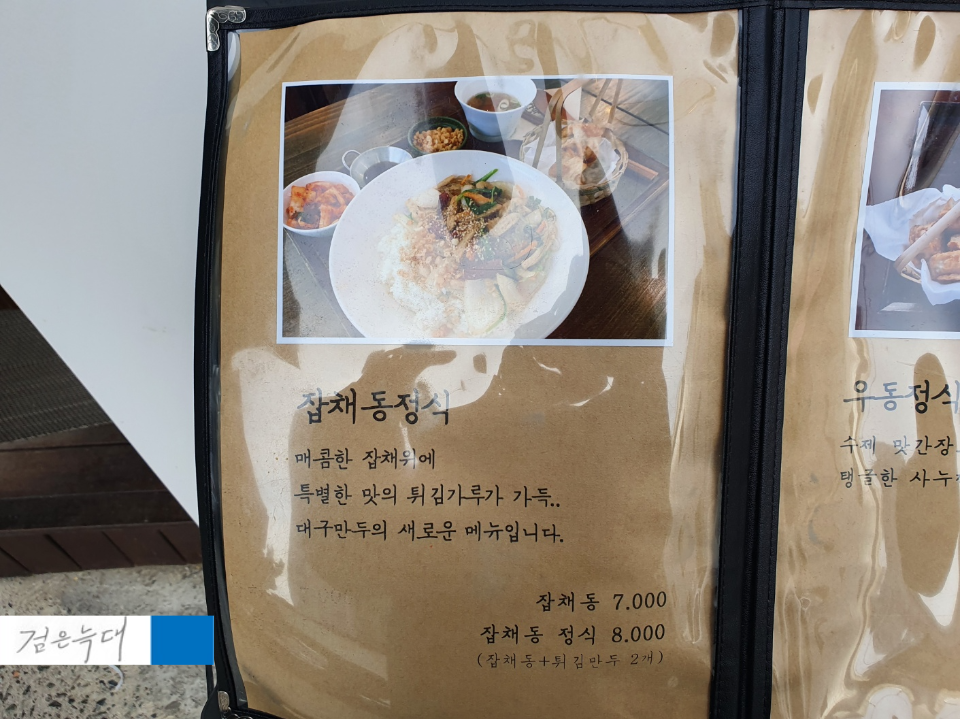 잡채동정식
매콤한 잡채위에
특별한 맛의 튀김가루가 가득..
대구만두의 새로운 메뉴입니다.
잡채동 7.000
잡채동 정식 8.000
(잡채동+튀김만두 2개)
우동정식
수제 맛간장
탱글한 사누
검은늑대